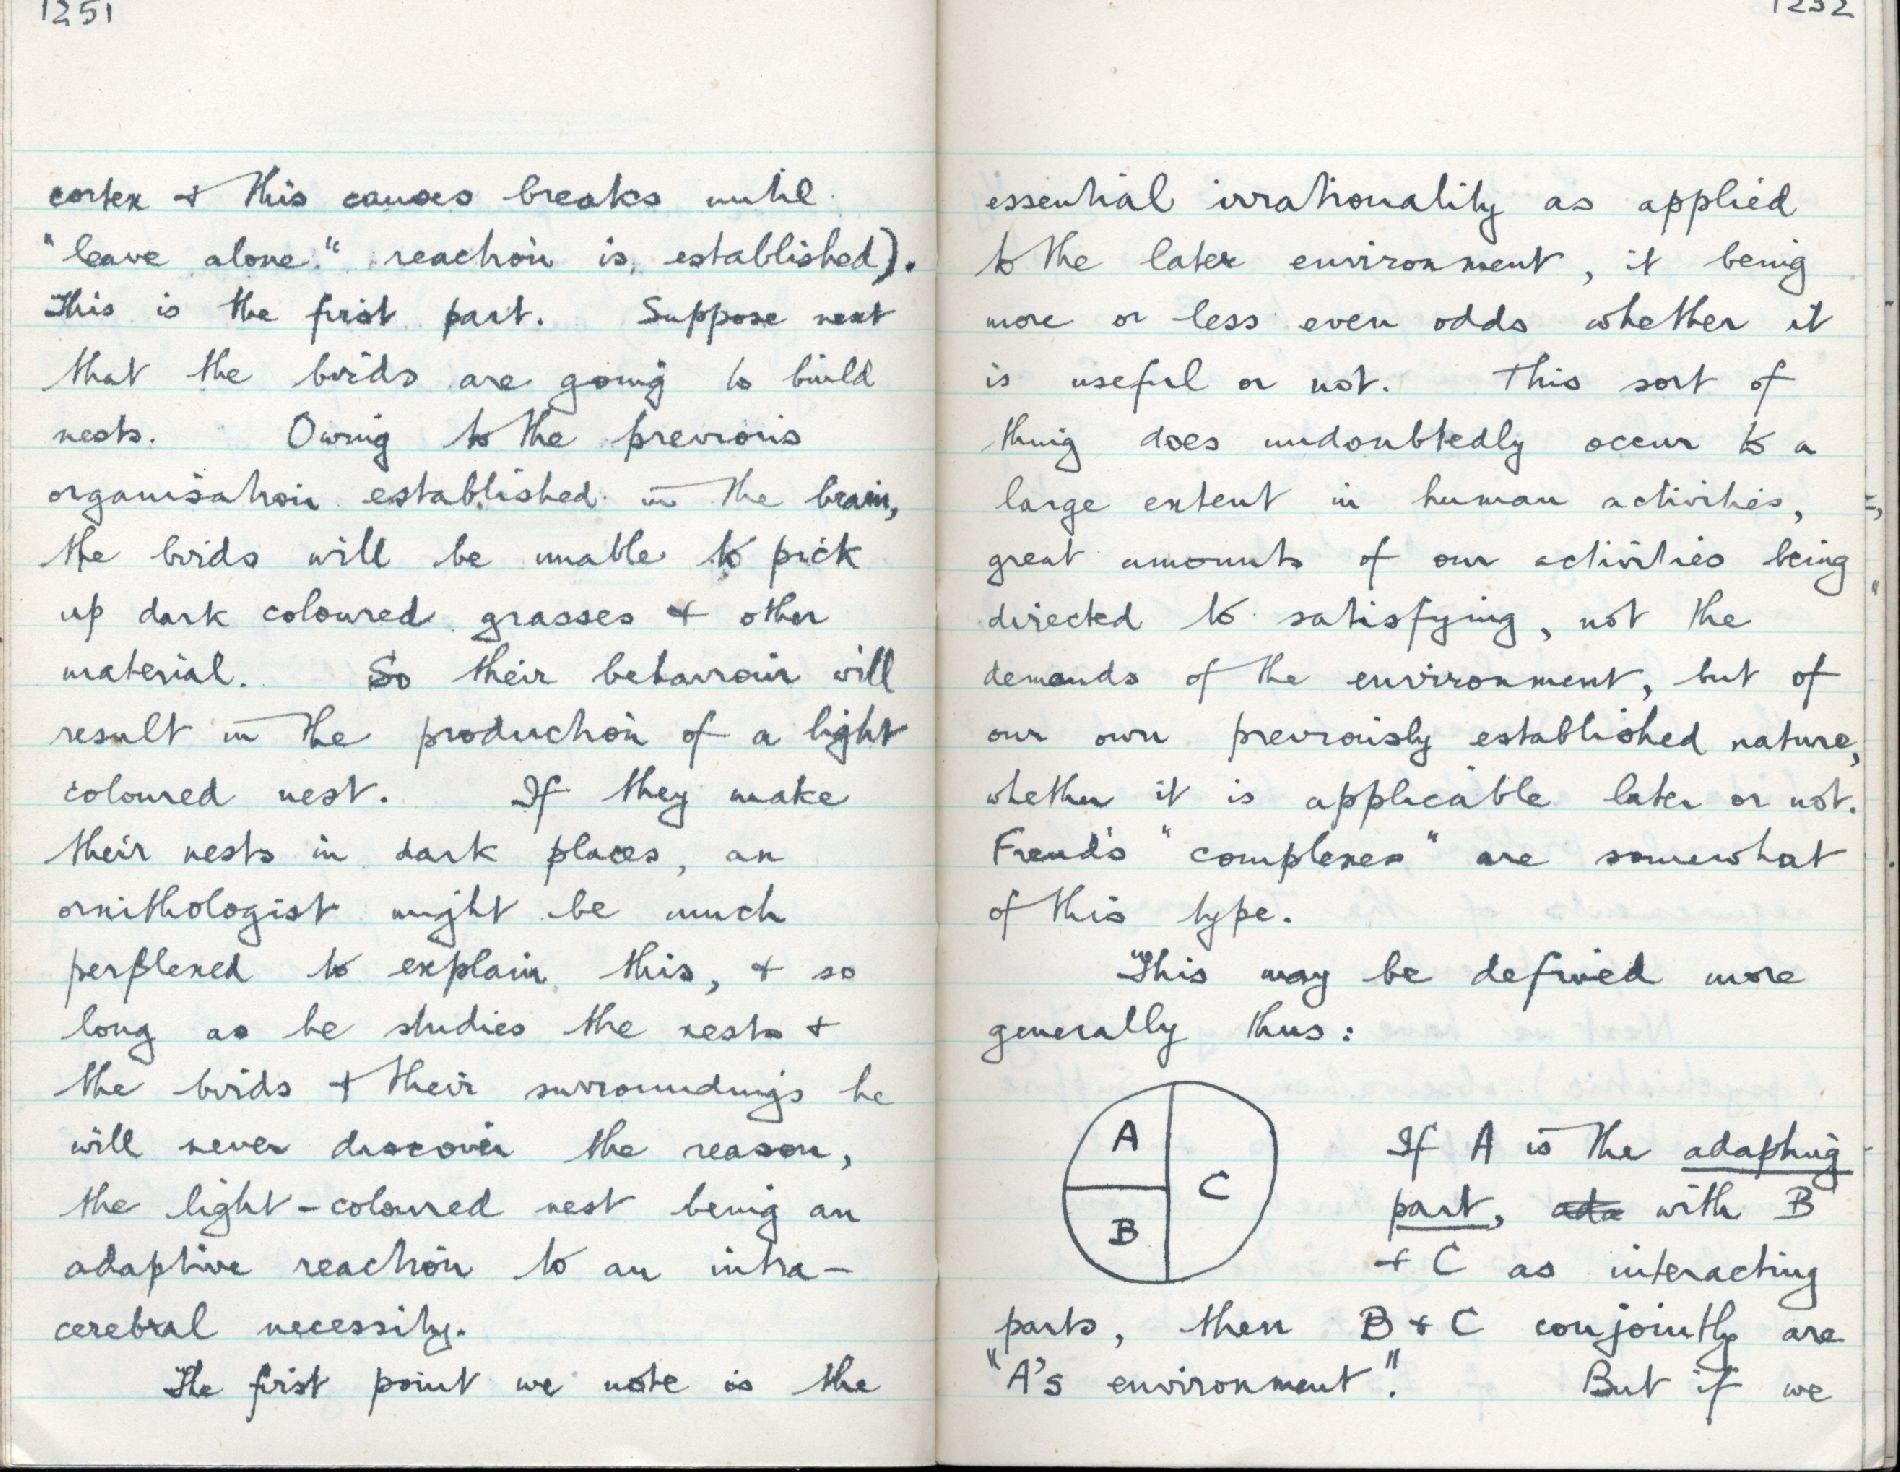 1251
cortex & this causes breaks until
"leave alone" reaction is established).
This is the first part. Suppose next
that the birds are going to build
nests. Owing to the previous
organisation established in the brain,
the birds will be unable to pick
up dark coloured grasses & other
material. So their behaviour will
result in the production of a light
coloured nest. If they make
their nests in dark places, an
ornithologist might be much
perplexed to explain this, & so
long as he studies the nests &
the birds & their surroundings he
will never discover the reason,
the light-coloured nest being an
adaptive reaction to an intra-
cerebral necessity.
The first point we note is the
1252
essential irrationality as applied
to the later environment, it being
more or less even odds whether it
is useful or not. This sort of
thing does undoubtedly occur to a
large extent in human activities,
great amounts of our activities being
directed to satisfying, not the
demands of the environment, but of
our own previously established nature,
whether it is applicable later or not.
Freud's "complexes" are somewhat
of this type.
This may be defined more
generally thus:
A
B
C
If A is the adapting
part, ada with B
& C as interacting
parts, then B & C conjointly are
"A's environment". But if we